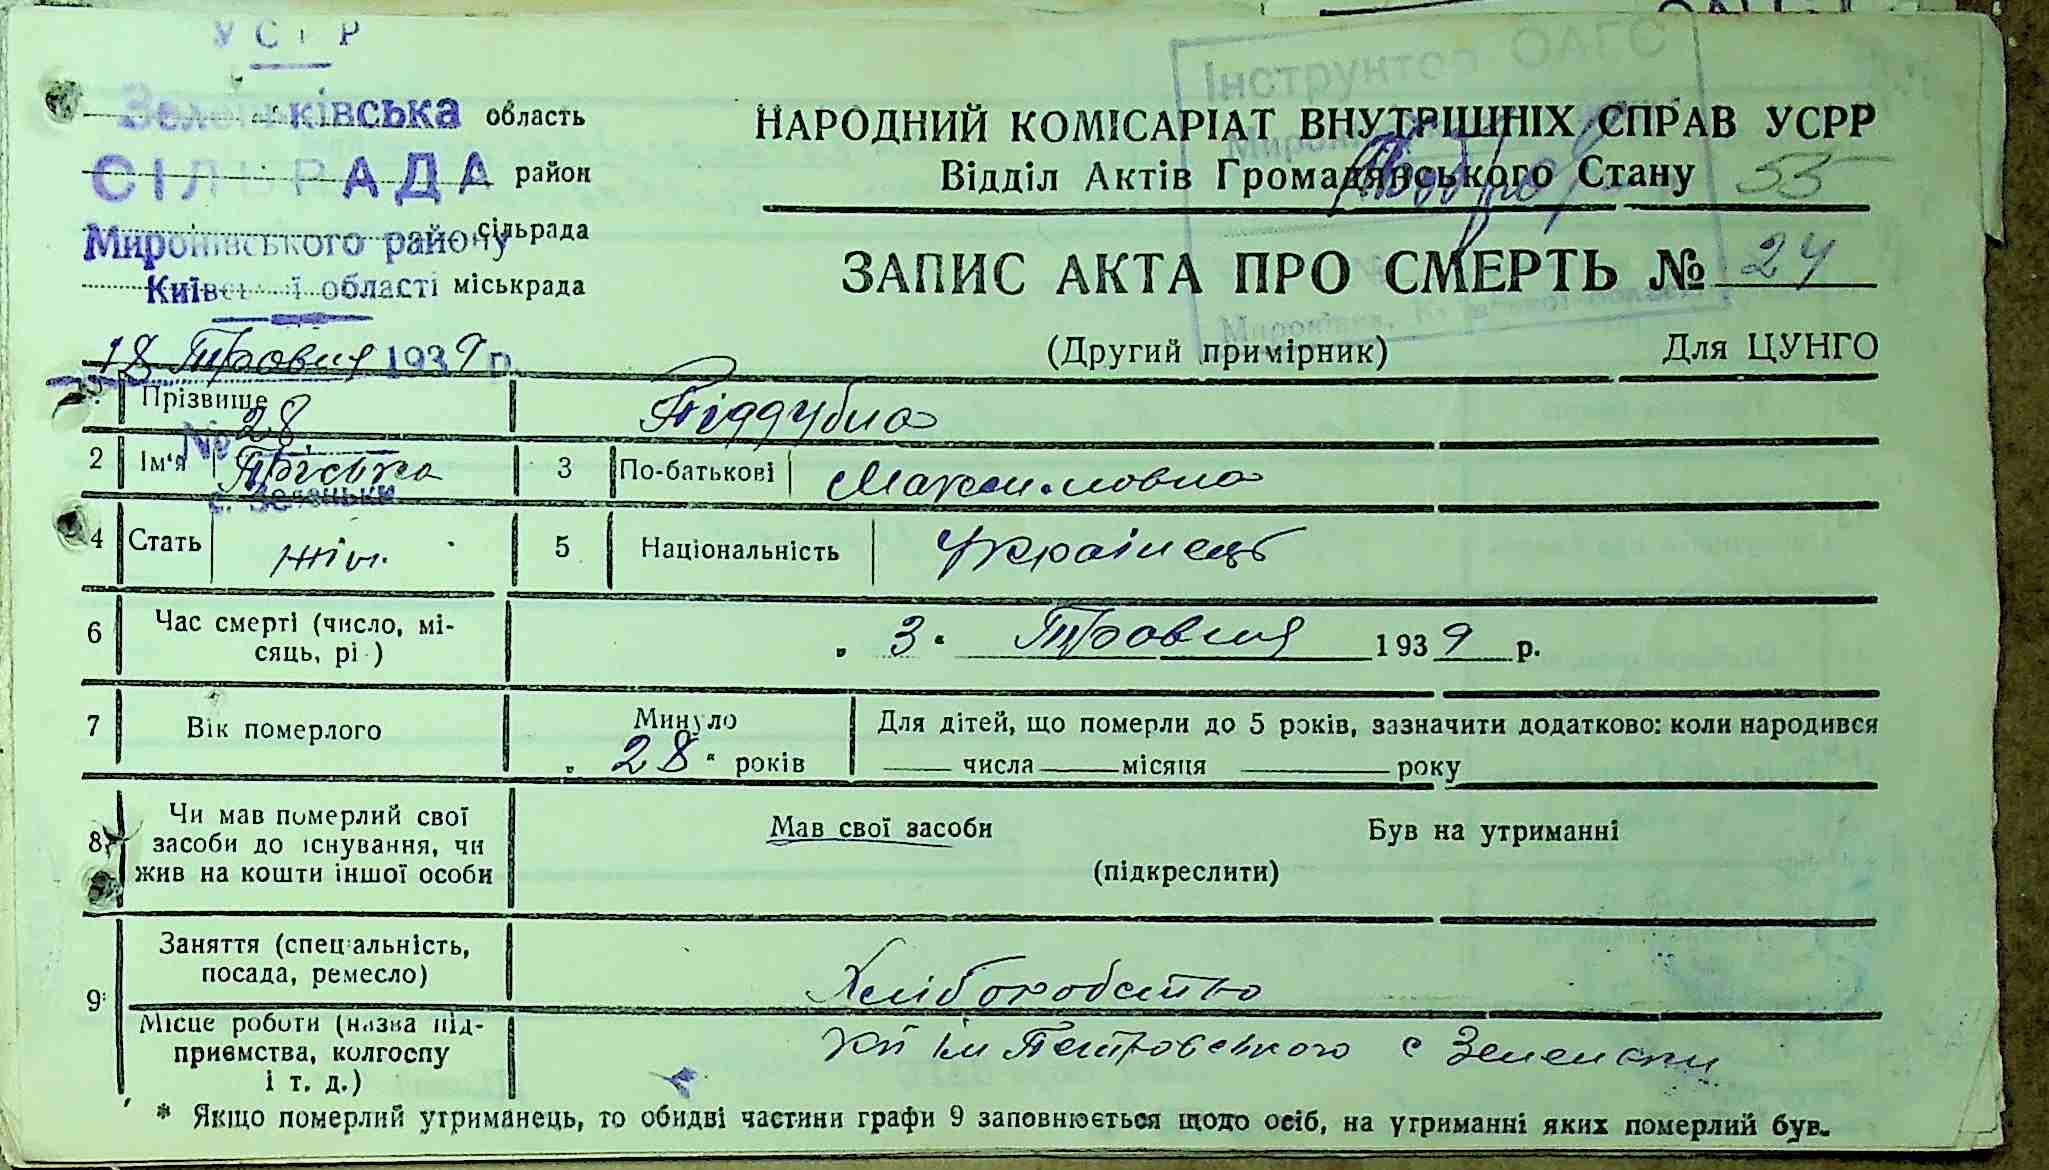 УСРР
Інструктор ОАГС
Зеленьківська область
НАРОДНИЙ КОМІСАРІАТ ВНУТРІШНІХ СПРАВ УСРР
СІЛЬРАДА район
Відділ Актів Громадянського Стану 55
Миронівського району сільрада
Київської області міськрада
ЗАПИС АКТА ПРО СМЕРТЬ № 24
18 Травня 1939 р.
(Другий примірник) Для ЦУНГО
Прізвище Піддубна
№ 28
2 Ім'я 3 По-батькові Максимовна
с. Зеленьки
4 Стать жін. 5 Національність Українець
6 Час смерті (число, мі-
сяць, рі ) „ 3 " Травня 1939 р.
7 Вік померлого Минуло
„ 28 " років
Для дітей, що померли до 5 років, зазначити додатково: коли народився
числа місяця року
8 Чи мав померлий свої
засоби до існування, чи
жив на кошти іншої особи
Мав свої засоби Був на утриманні
(підкреслити)
9 Заняття (спеціальність,
посада, ремесло) Хліборобство
Місце роботи (назва під-
приємства, колгоспу
і т. д.) ім Петровського с Зеленьки
* Якщо померлий утриманець, то обидві частини графи 9 заповнюється щодо осіб, на утриманні яких померлий був.